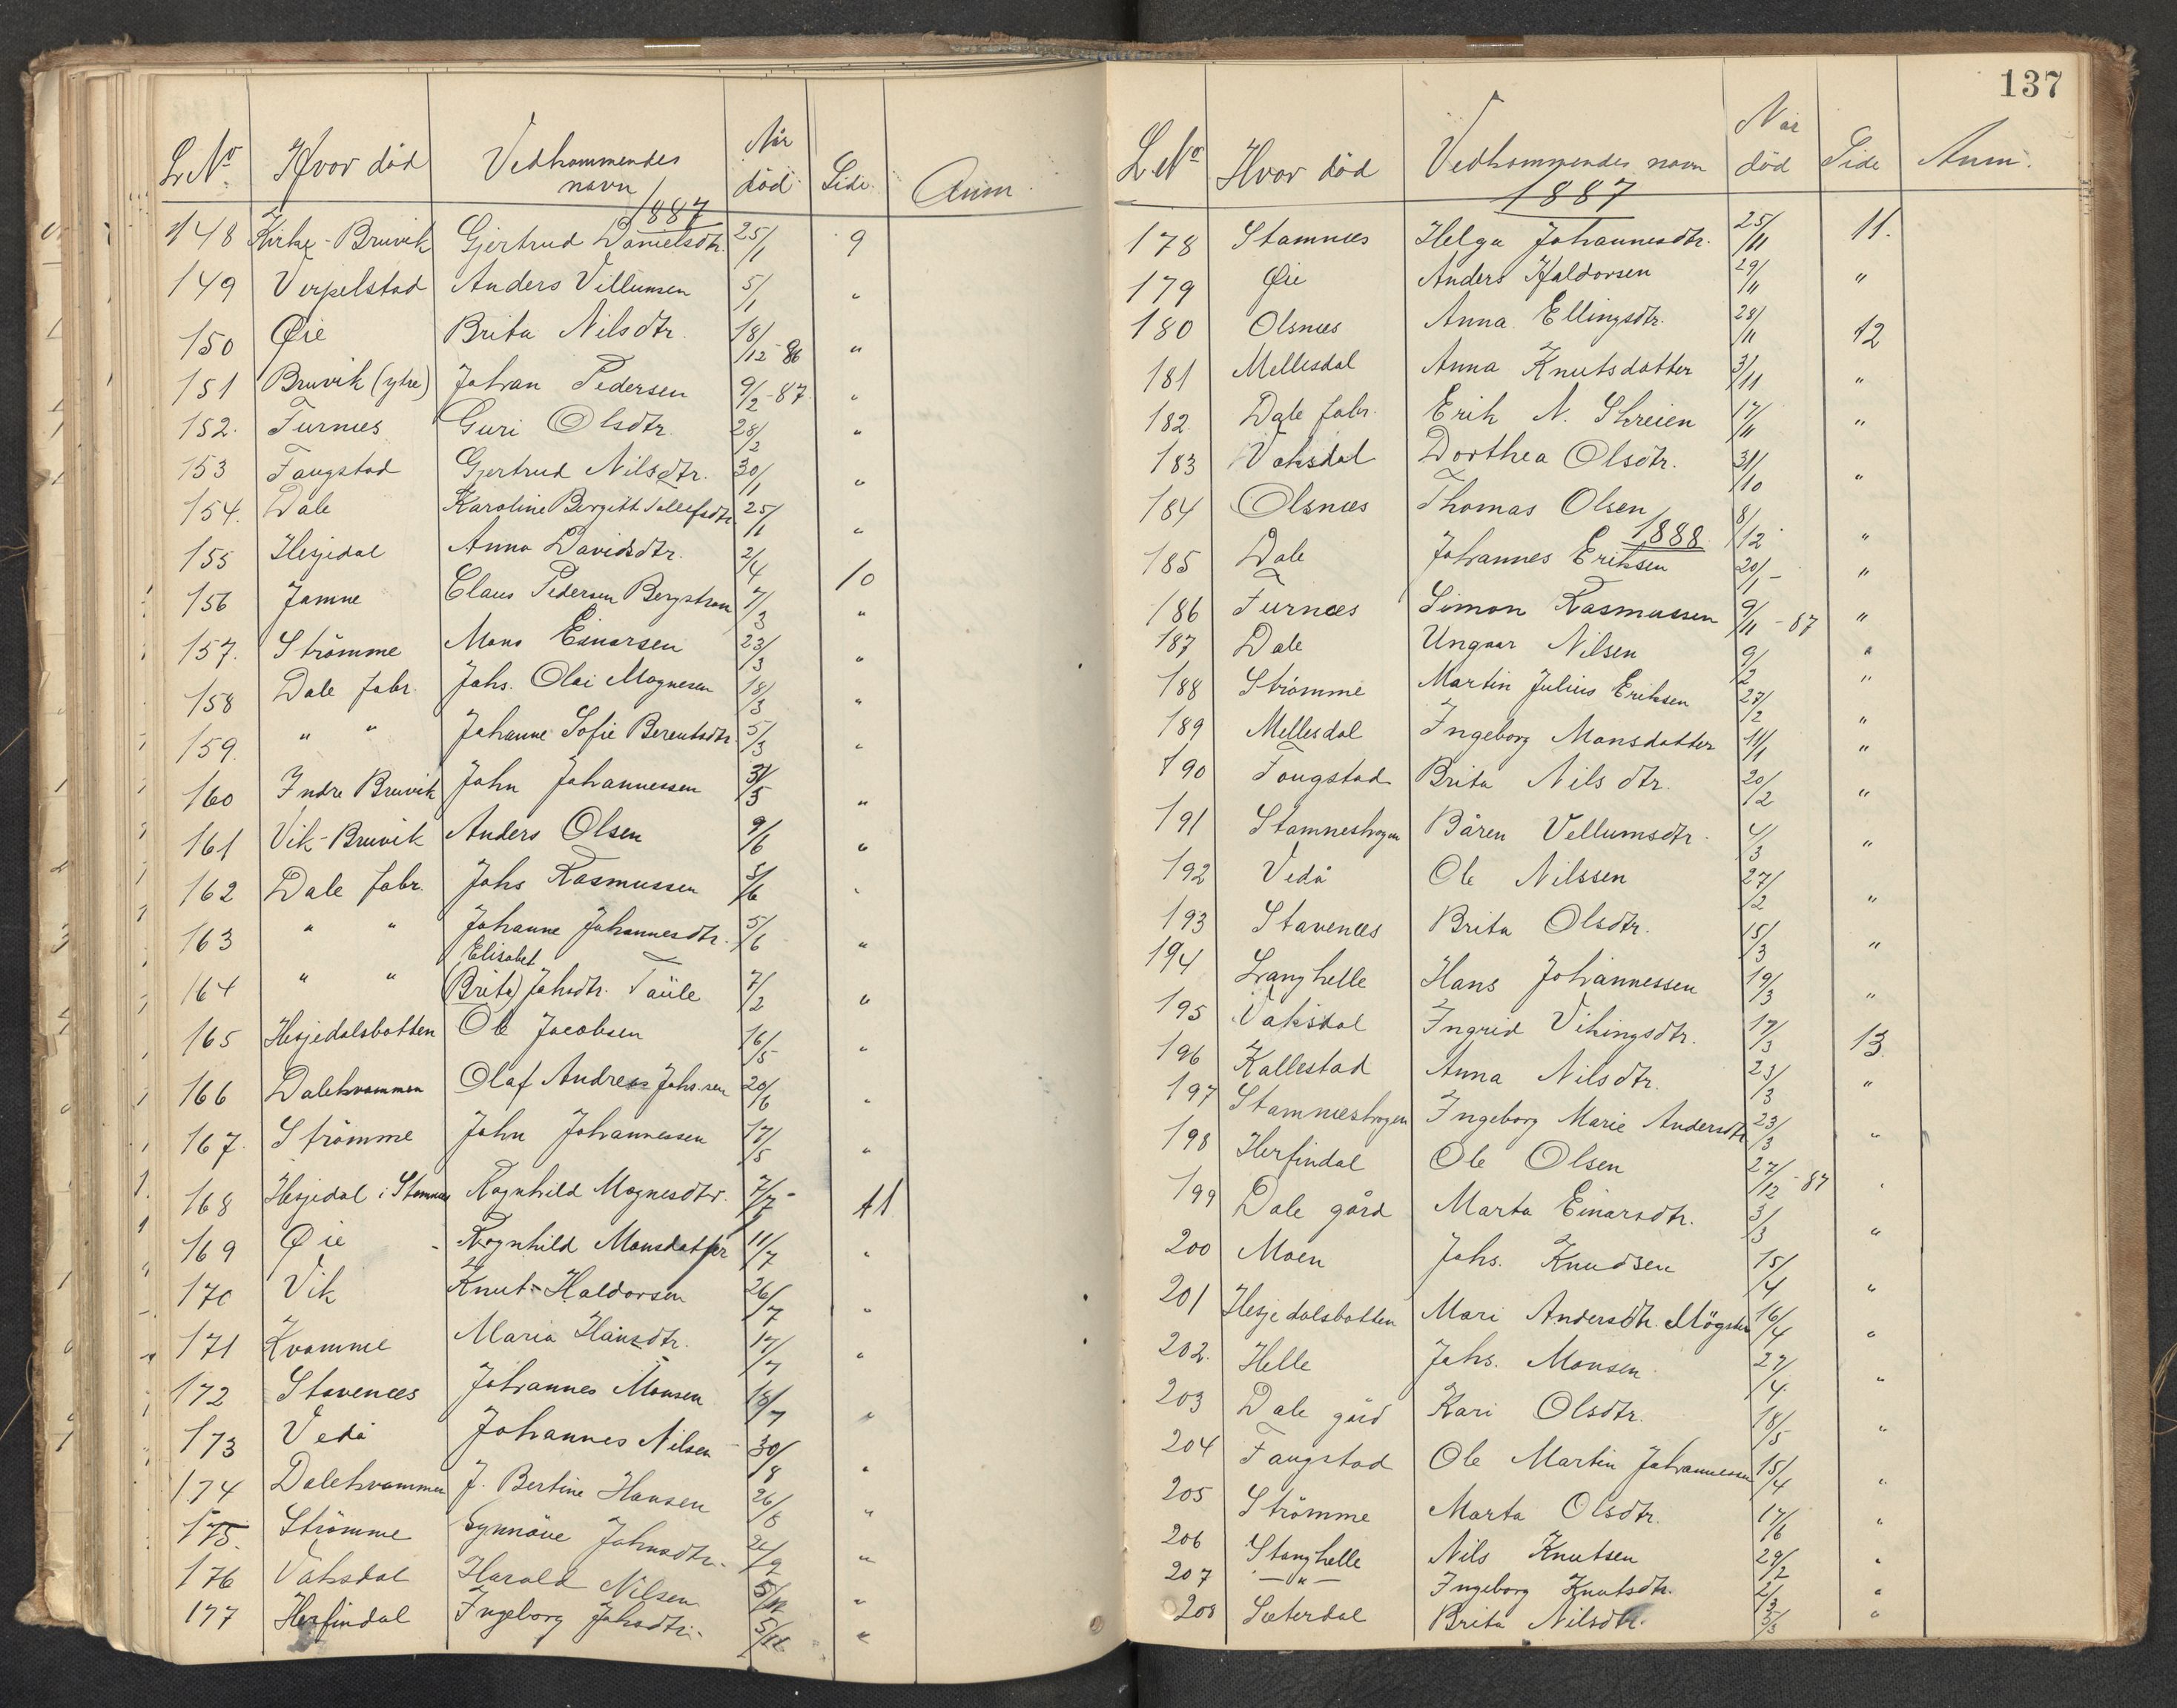 L. No. Hvor död Vedkommendes navn Når död Side Anm.
1887
148 Kirke-Bruvik Gjertrud Danielsdtr. 25/1 9
149 Virpelstad Anders Villumsen 5/1 "
150 Øie Brita Nilsdtr. 18/12-86 "
151 Bruvik (ytre) Johan Pedersen 9/2-87. "
152. Furnæs Guri Olsdtr. 28/2 "
153 Fougstad Gjertrud Nilsdtr. 30/1 "
154. Dale Karoline Bergitte Tollefsdtr. 25/1 "
155 Hesjedal Anna Davidsdtr. 2/4 10
156 Jamne Claus Pedersen Bergstrøm 7/3 "
157. Strömme Mons Einarsen 23/3 "
158 Dale fabr. Johs. Olai Magnesen 18/3 "
159. " " Johanne Sofie Berentsdtr. 5/3 "
160 Indre Bruvik John Johannessen 31/5 "
161 Vik-Bruvik Anders Olsen 9/6 "
162 Dale fabr. Johs Rasmussen 5/6 "
163 " " Johanne Johannesdtr. 5/6 "
Elisabet
164 " " (Brita) Johsdtr. Taule 7/2 "
165 Hesjedalsbotten Ole Jacobsen 16/5 "
166 Dalekvammen Olaf Andreas Johs.sen 20/6 "
167. Strömme John Johannessen 17/5 "
168 Hesjedal i Stamnæs Ragnhild Mognesdtr. 7/7 11
169 Øie Ragnhild Monsdatter 11/7 "
170 Vik Knut Haldorsen 26/7 "
171 Kvamme Maria Hansdtr. 17/7 "
172 Stavenæs Johannes Monsen 18/7 "
173 Vedå Johannes Nilsen 30/8 "
174 Dalekvammen J. Bertine Hansen 26/8 "
175. Strömme Synnöve Johnsdtr. 21/9 "
176 Vaksdal Harald Nilsen "
177 Herfindal Ingeborg Johsdtr. "
137
L. No. Hvor död Vedkommendes navn Når död Side Anm.
1887
178 Stamnæs Helga Johannesdtr. 25/11 11.
179 Øie Anders Haldorsen 29/11 "
180 Olsnæs Anna Ellingsdtr. 28/11 12
181 Mellesdal Anna Knutsdatter 3/11 "
182. Dale fabr. Erik N. Skreien 17/11 "
183 Vaksdal Dorthea Olsdtr. 31/10 "
184 Olsnæs Thomas Olsen 8/12 "
1888
185 Dale Johannes Eriksen 20/1- "
186 Furnæs Simon Rasmussen 9/11-87 "
187 Dale Ungaar Nilsen 9/2 "
188 Strömme Martin Julius Eriksen 27/2 "
189 Mellesdal Ingeborg Monsdatter 11/1 "
190 Fougstad Brita Nilsdtr. 20/2 "
191 Stamneskrogen Båren Vellumsdtr. 4/3 "
192 Vedå Ole Nilssen 27/2 "
193 Stavenæs Brita Olsdtr. 15/3 "
194 Langhelle Hans Johannessen 19/3 "
195 Vaksdal Ingrid Vikingsdtr. 17/3 13
196 Kallestad Anna Nilsdtr. 23/3 "
197 Stamnæskrogen Ingeborg Marie Andersdtr 23/3 "
198 Herfindal Ole Olsen 27/12-87 "
199 Dale gård Marta Einarsdtr. 3/3 "
200 Moen Johs. Knudsen 15/4 "
201 Hesjedalsbotten Mari Andersdtr. Mögster 16/4 "
202. Helle Johs. Monsen 27/4 "
203 Dale gård Kari Olsdtr. 18/5 "
204 Fougstad Ole Martin Johannessen 15/4 "
205 Strömme Marta Olsdtr. 17/6 "
206 Stanghelle Nils Knutsen 29/2 "
207 -"- Ingeborg Knutsdtr. 2/3 "
208 Sæterdal Brita Nilsdtr. 5/5 "